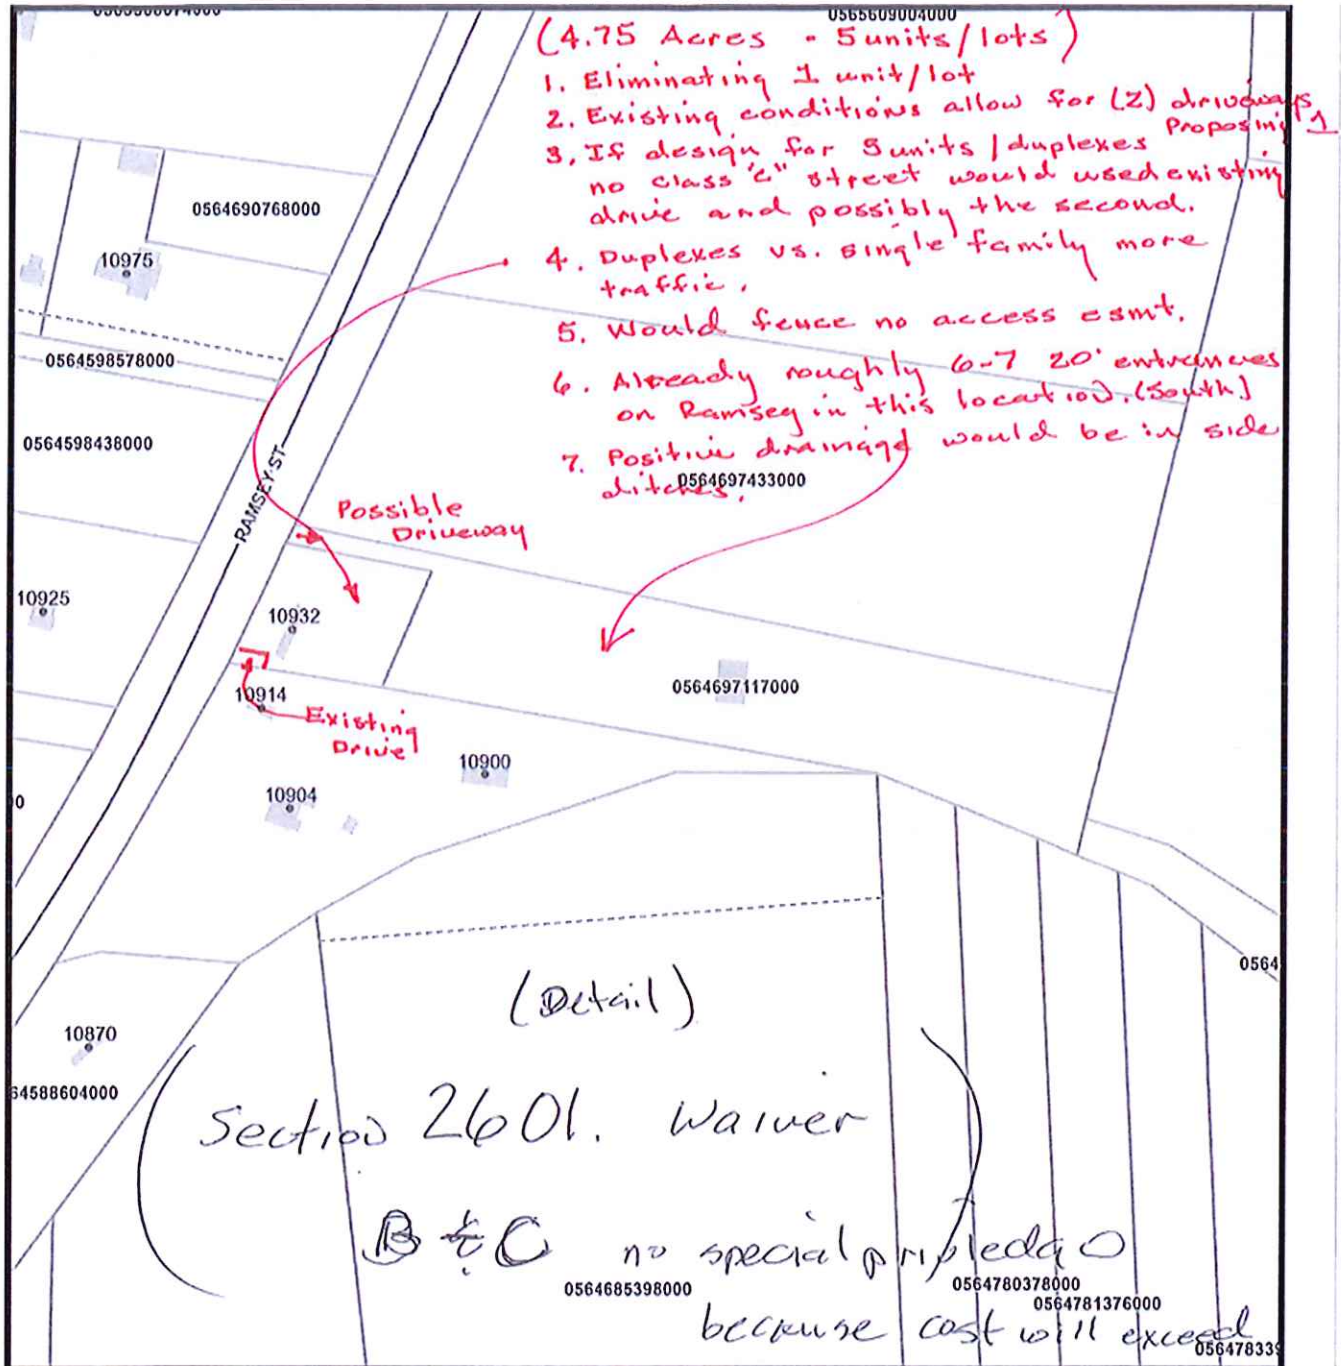 0565609004000
(4.75 Acres - 5units/lots)
1. Eliminating 1 unit/lot
2. Existing conditions allow for (2) driveways
Proposing 1
3. If design for 5units/duplexes
no class "C" street would used existing
drive and possibly the second.
4. Duplexes vs. single family more
traffic.
5. Would fence no access esmt.
6. Already roughly 6-7 20' entrances
on Ramsey in this location. (South)
7. Positive drainage would be in side
ditches.
0564690768000
10975
0564598578000
0564598438000
RAMSEY ST
0564697433000
Possible
Driveway
10925
10932
0564697117000
10914
Existing
Drive
10900
10904
0
0564
(Detail)
10870
64588604000
Section 2601. Waiver
B & C no special priviledge
0564685398000
0564780378000
0564781376000
because cost will exceed
056478339